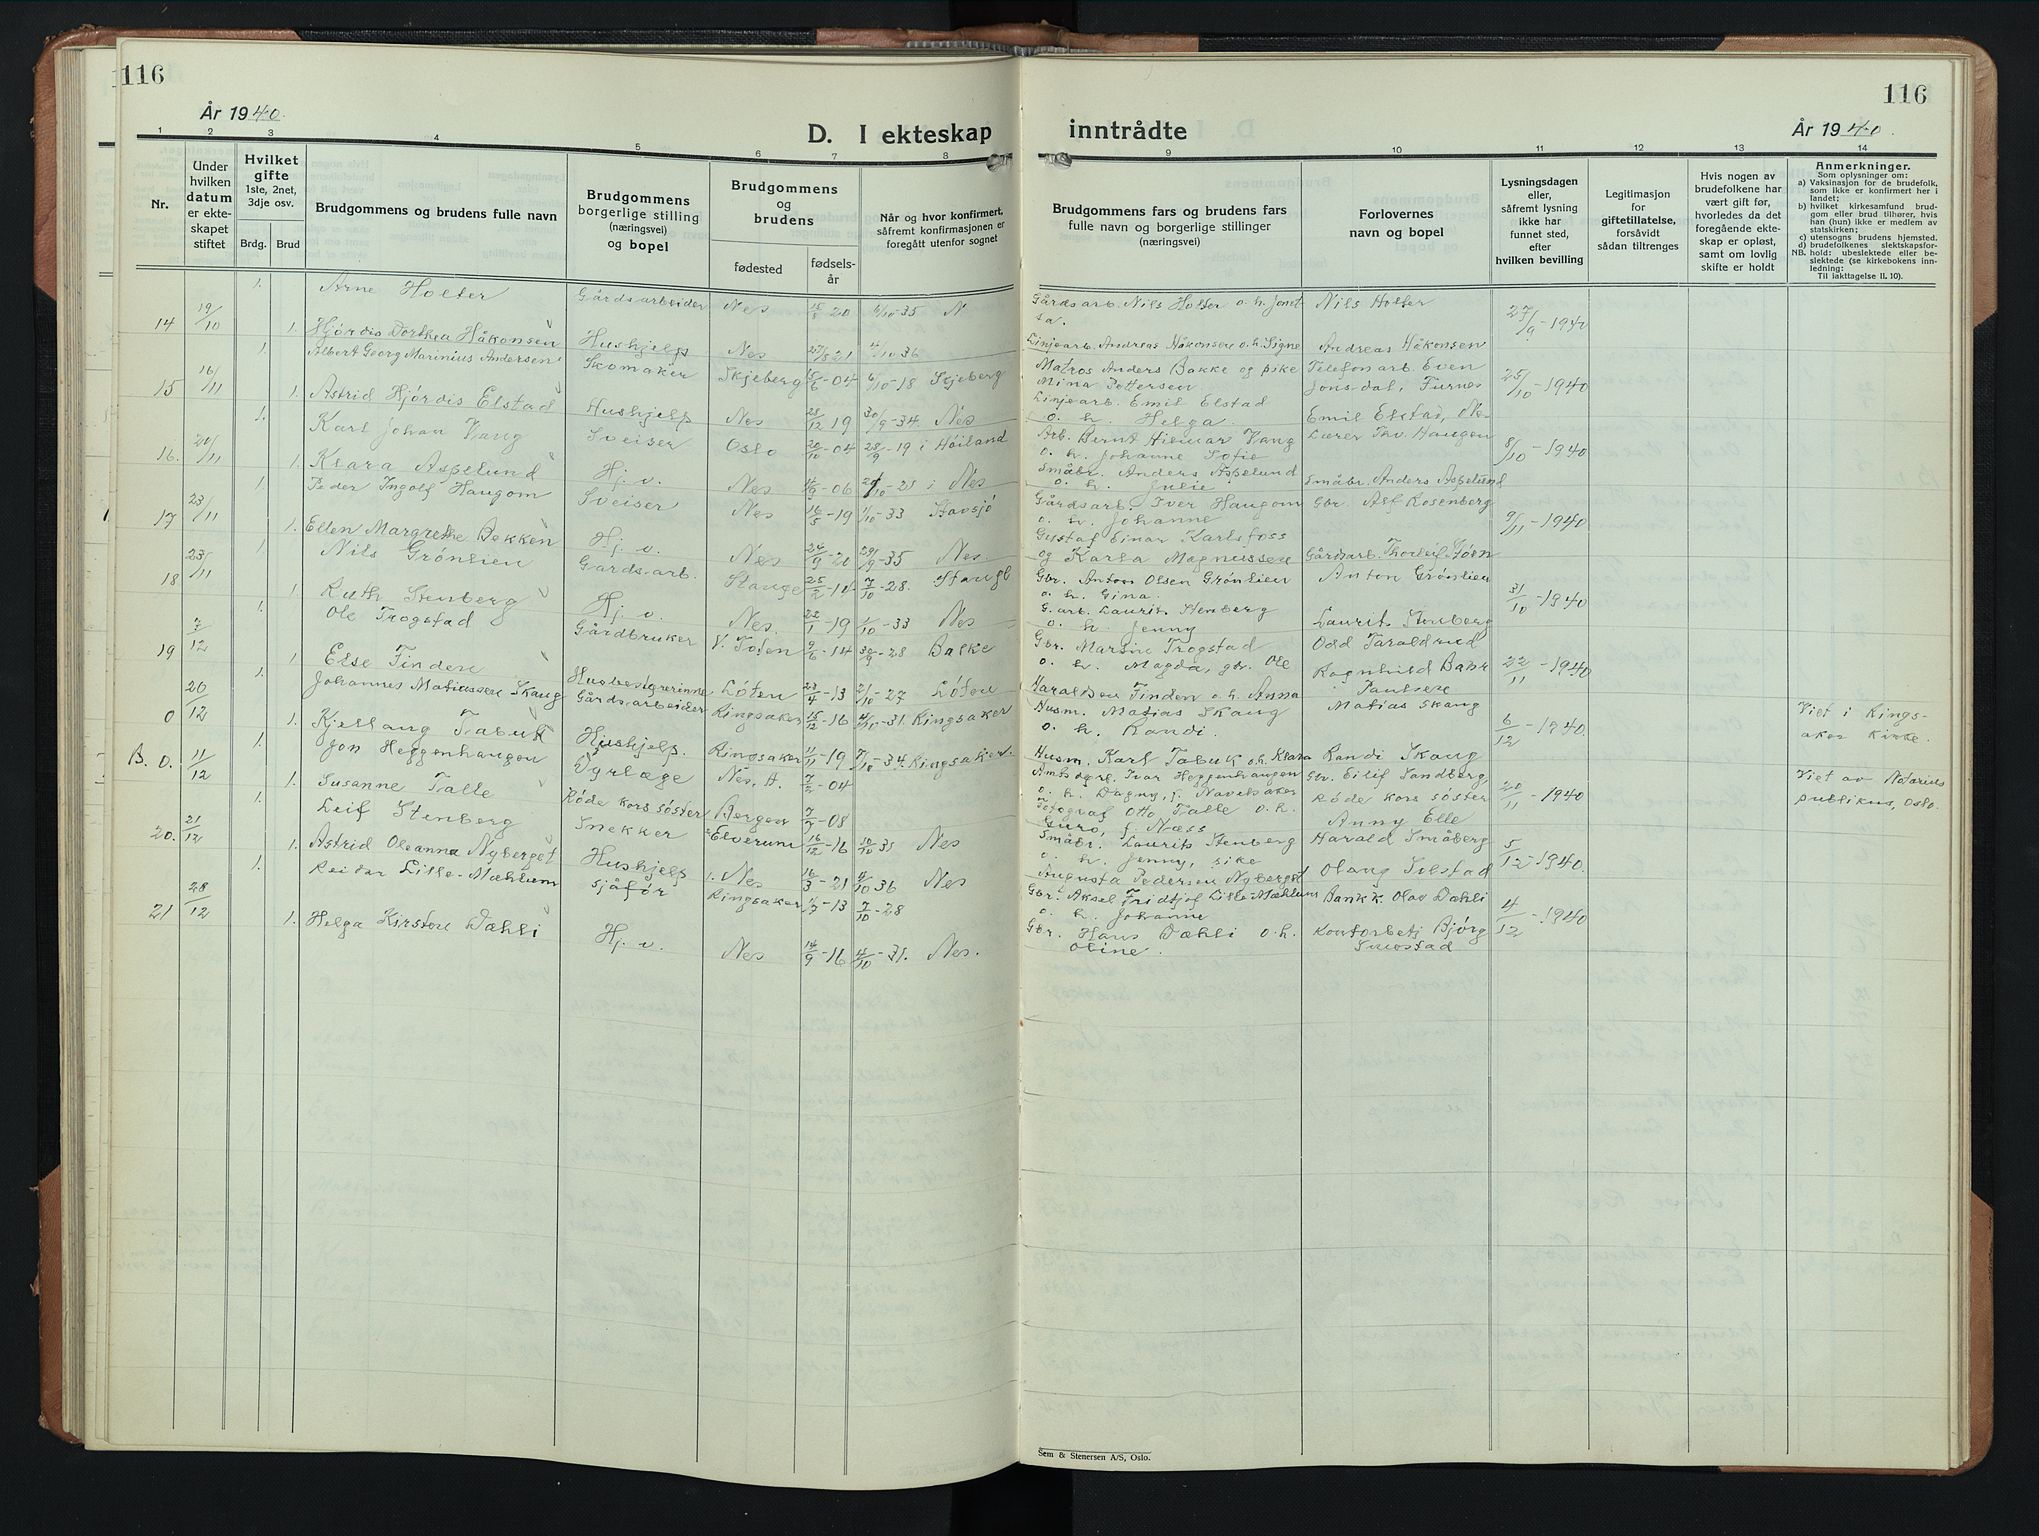 116
År 1940.
D. I ekteskap
1 2 3 4 5 6 7 8
Nr.
Under hvilken datum er ekteskapet stiftet
Hvilket gifte
1ste, 2net, 3dje osv.
Brdg. Brud
Brudgommens og brudens fulle navn
Brudgommens borgerlige stilling (næringsvei) og bopel
Brudgommens og brudens
fødested
fødselsår
Når og hvor konfirmert, såfremt konfirmasjonen er foregått utenfor sognet
14 19/10 1. Arne Holter Gårdsarbeider Nes 20 35 N
1. Hjørdis Dorthea Håkonsen Hushjelp Nes 27/8 21 4/10 36
15 16/11 1. Albert Georg Marinius Andersen Skomaker Skjeberg 15/6-04 6/10-18 Skjeberg
1. Astrid Hjørdis Elstad Hushjelp Nes 28/12 19 30/9-34. Nes
16. 20/11 1. Karl Johan Vang Sveiser Oslo 20/10-04 28/9-19 i Høiland
1. Klara Aspelund Hj. v. Nes 4/9-06 i Nes
17 23/11 1. Peder Ingolf Haugom Sveiser Nes 16/5-19 1/10-33 Stavsjø
1. Ellen Margrethe Bekken Hj. v. Nes 24/9-20 29/9-35 Nes.
18 23/11 1. Nils Grønlien Gårdsarb. Stange 25/2-14 7/10-28. Stange
1. Ruth Stenberg Hj. v. Nes. 22/1-19 1/10-33 Nes
19 7/12 1. Ole Trogstad Gårdbruker V. Toten 9/6-14 30/9-28 Balke
1. Else Finden Husbestyrerinne Løten 23/4-13 2/10-27 Løten
0 20/12 1. Johannes Matiassen Skaug Gårdsarbeider Ringsaker 15/12-16 4/10-31. Ringsaker
1. Kjellaug Tabuk Hushjelp. Ringsaker 11/11-19 7/10-34. Ringsaker.
B. 0. 11/12 1. Jon Heggenhaugen Dyrlæge Nes. A. 7/2-04
1. Susanne Talle Røde kors søster Bergen 7/9-08
20. 21/12 1. Leif Stenberg Snekker Elverum 16/12-16 10/10 31 Nes
1. Astrid Oleanna Nyberget Hushjelp Nes 16/3-21 4/10 36 Nes
21 28/12 1. Reidar Lille-Mæhlum Sjåfør Ringsaker 13 7/10-28
1. Helga Kirstine Dæhli Hj. v. Nes 14/9-16 4/10-31. Nes.
116
inntrådte
År 1940.
9 10 11 12 13 14
Brudgommens fars og brudens fars fulle navn og borgerlige stillinger (næringsvei)
Forlovernes navn og bopel
Lysningsdagen eller, såfremt lysning ikke har funnet sted, efter hvilken bevilling
Legitimasjon for giftetillatelse, forsåvidt sådan tiltrenges
Hvis nogen av brudefolkene har vært gift før, hvorledes da det foregående ekteskap er opløst, samt om lovlig skifte er holdt
Anmerkninger.
Som oplysninger om:
a) Vaksinasjon for de brudefolk, som ikke er konfirmert her i landet;
b) hvilket kirkesamfund brudgom eller brud tilhører, hvis han (hun) ikke er medlem av statskirken;
c) utensogns brudens hjemsted.
d) brudefolkenes slektskapsforhold: ubeslektede eller beslektede (se kirkebokens innledning:
NB. Til iakttagelse II. 10).
Gårdsarb. Nils Holter o. h. Jonetta. Nils Holter 27/9-1940
Linjearb. Andreas Håkonsen o. h. Signe Andreas Håkonsen
Matros Anders Bakke og pike Mina Pettersen Telefonarb. Even Jonsdal, Furnes 25/10-1940
Linjearb. Emil Elstad o. h. Helga. Emil Elstad, Nes
Arb. Bernt Hilmar Vang o. h. Johanne Sofie Lærer Thv. Haugen 8/10-1940
Småbr. Anders Aspelund o. h. Julie Småbr. Anders Aspelund
Gårdsarb. Iver Haugom o. h. Johanne Gbr. Alf Rosenberg 9/11-1940
Gustaf Einar Karlsfoss og Karla Magnussen Gårdsarb. Thorleif Støen
Gbr. Anton Olsen Grønlien o. h. Gina. Anton Grønlien 31/10-1940
G. arb. Laurits Stenberg o. h. Jenny Laurits Stenberg
Gbr. Martin Trogstad o. h. Magda, gbr. Ole Odd Taraldrud 22/11-1940
Haraldsen Finden o. h. Anna Ragnhild Bahr Paulsen
Husm. Matias Skaug o. h. Randi. Matias Skaug 6/12-1940. Viet i Ringsaker kirke.
Husm. Karl Tabuk o. h. Klara Randi Skaug
Amtsagr. Ivar Heggenhaugen o. h. Dagny, f. Navelsaker Gbr. Eilif Sandberg 20/11-1940 Viet av Notarius publikus, Oslo.
Fotograf Otto Talle o. h. Guro, f. Næss Røde kors søster Anny Elle
Småbr. Laurits Stenberg o. h. Jenny, Harald Småberg 5/12-1940.
Augusta Pedersen Nyberget Olaug Silstad
Gbr. Aksel Fridtjof Lille-Mæhlum o. h. Johanne Bankk. Olav Dæhli 4/12-1940
Gbr. Hans Dæhli o. h. Oline. Kontorbetj Bjørg Smestad
Sem & Stenersen A/S, Oslo.